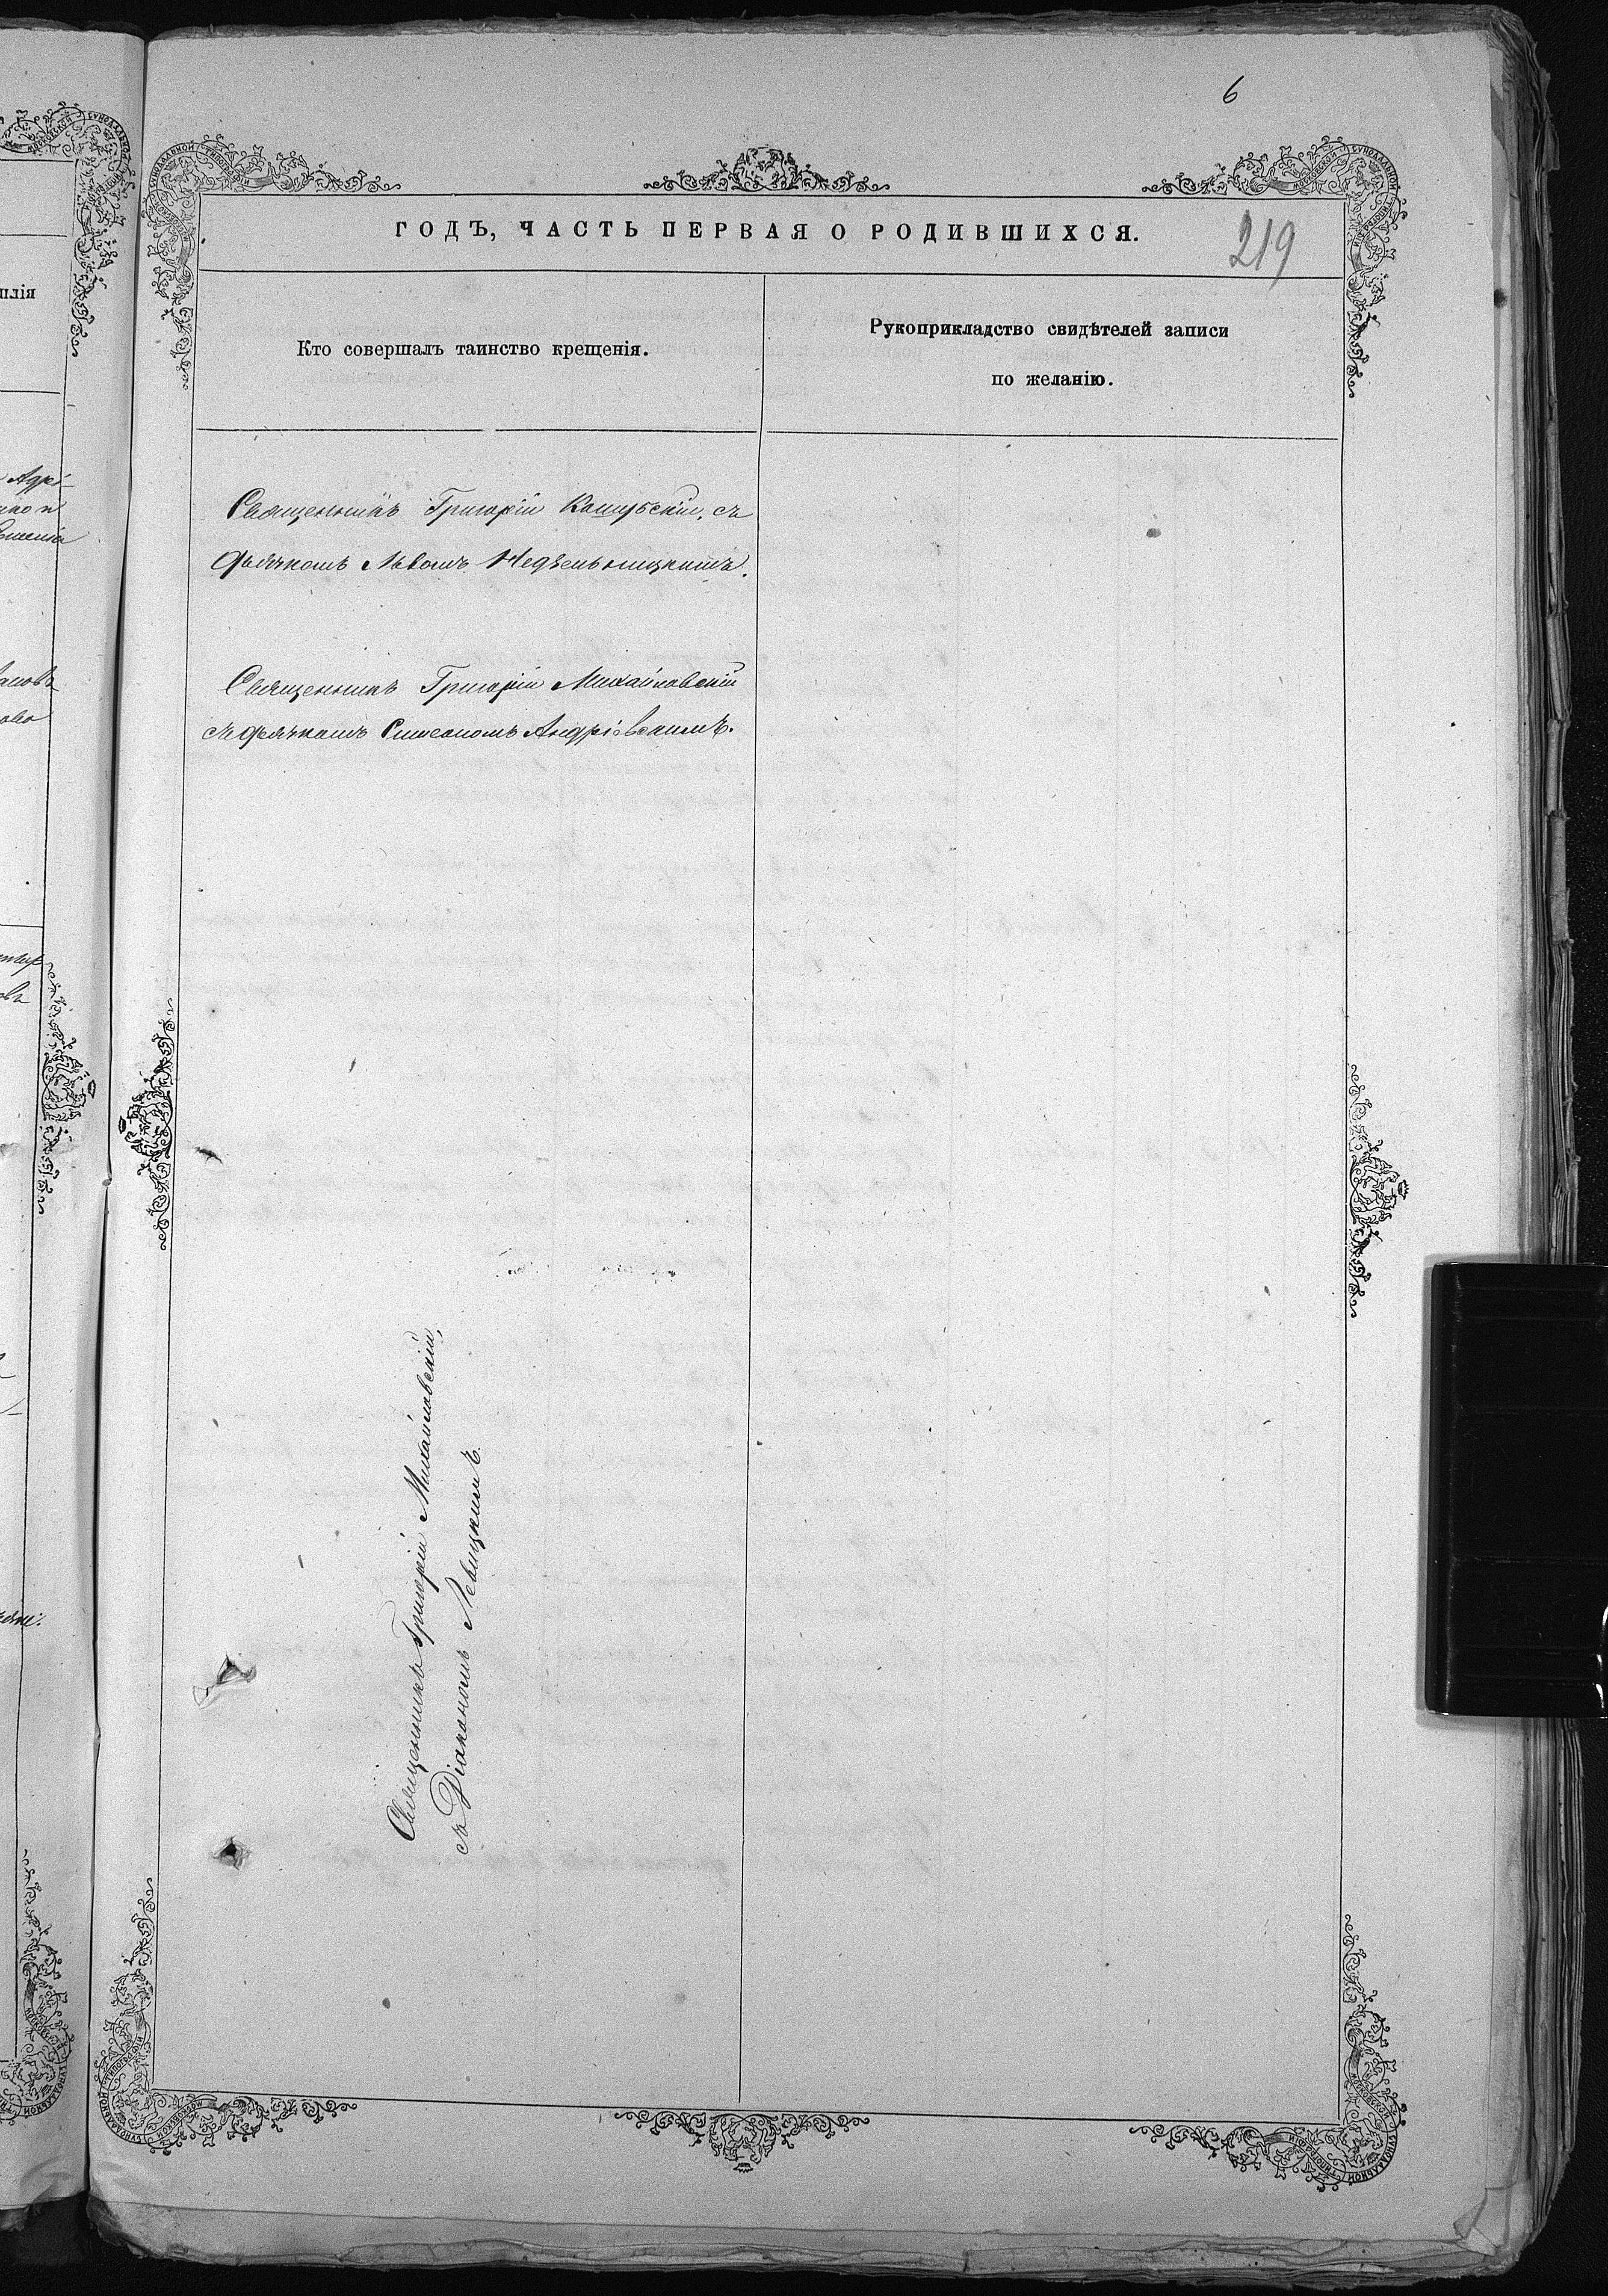 6
ГОДЪ, ЧАСТЬ ПЕРВАЯ О РОДИВШИХСЯ.
219
плія
Кто совершалъ таинство крещенія.
Рукоприкладство свидѣтелей записи
по желанію.
Священникъ Григорій съ
дьячкомъ Львомъ Недѣльницкимъ.
Священникъ Григорій Михайловскій
съ дьячкомъ Симеономъ Андріевскимъ.
Священникъ Григорій Михайловскій,
съ Діакономъ Левицкимъ